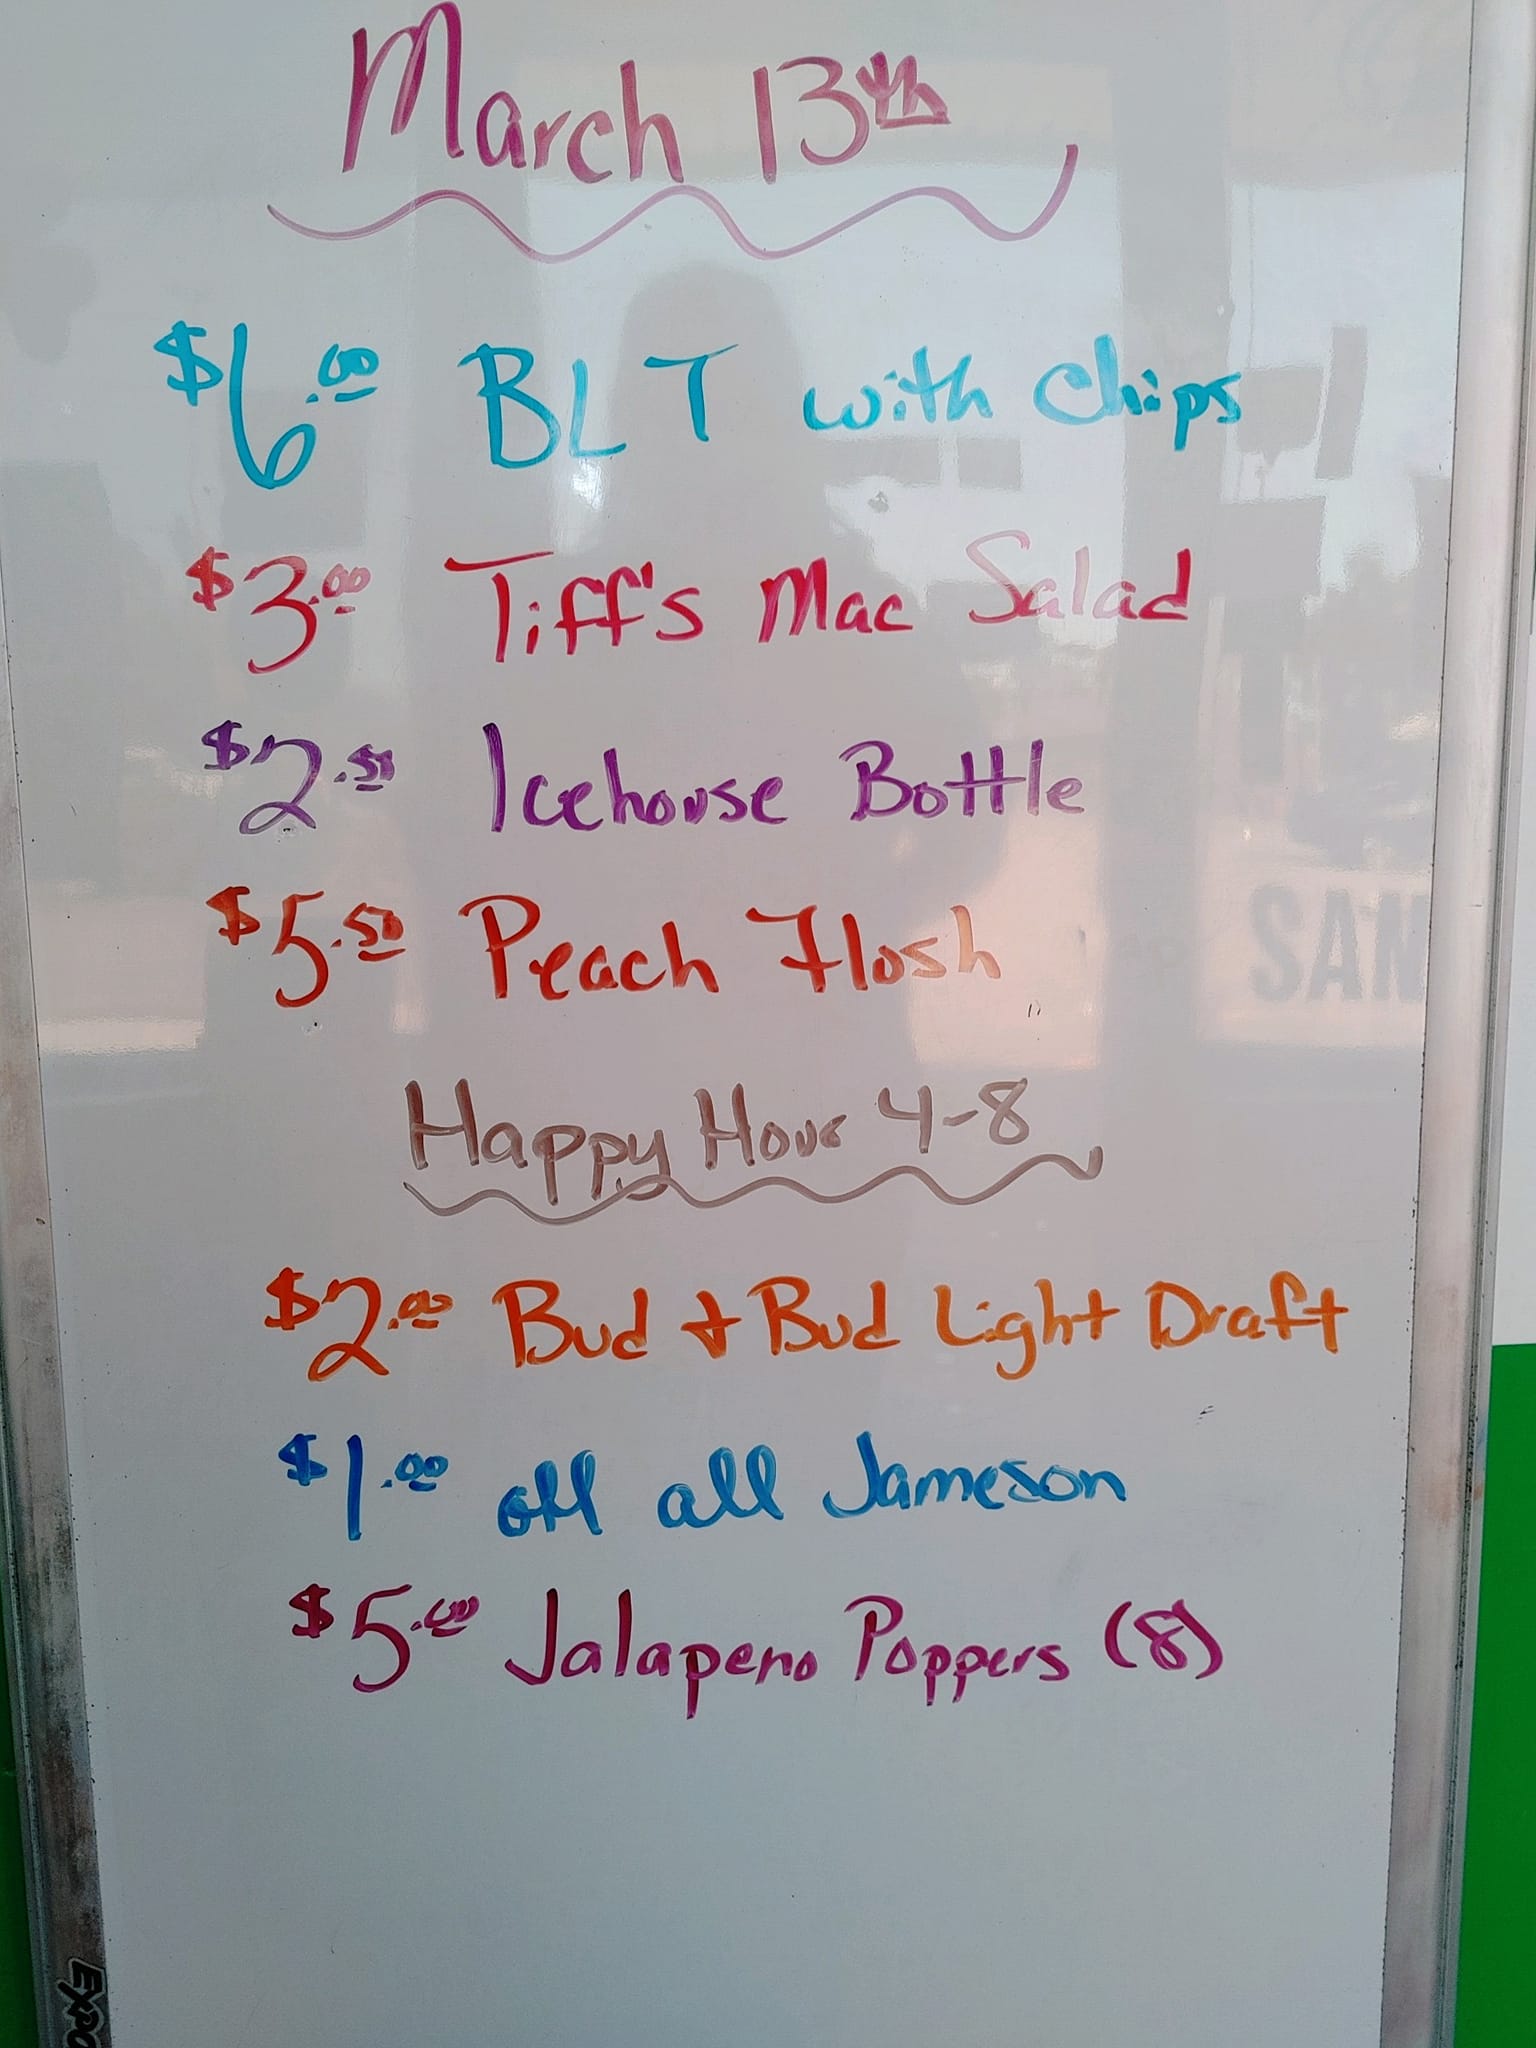 March 13th
$6.00 BLT with chips
$3.00 Tiff's Mac Salad
$2.50 Icehouse Bottle
$5.50 Peach Flush
SAN
Happy Hour 4-8
$2.00 Bud & Bud Light Draft
$1.00 off all Jameson
$5.00 Jalapeno Poppers (8)
EXPO